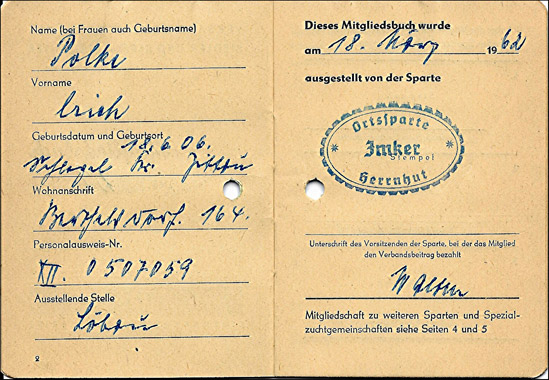 Name (bei Frauen auch Geburtsname)
Polke
Vorname
Erich
Geburtsdatum und Geburtsort
18. 6. 06.
Schlegel Kr. Zittau
Wohnanschrift
Berthelsdorf. 164.
Personalausweis-Nr.
XII. 0507059
Ausstellende Stelle
Löbau
2
Dieses Mitgliedsbuch wurde
am 18. März 1962
ausgestellt von der Sparte
Ortssparte
Imker
Stempel
Herrnhut
Unterschrift des Vorsitzenden der Sparte, bei der das Mitglied
den Verbandsbeitrag bezahlt
Mitgliedschaft zu weiteren Sparten und Spezial-
zuchtgemeinschaften siehe Seiten 4 und 5